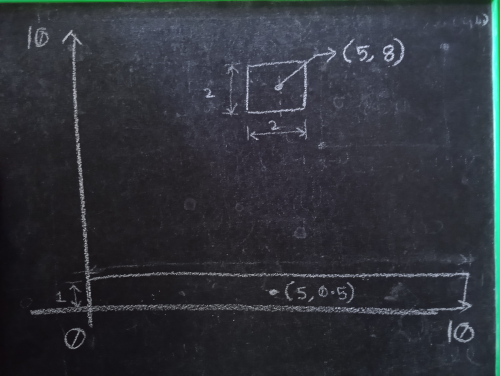 10
(5, 8)
2
2
1
(5, 0.5)
0
10